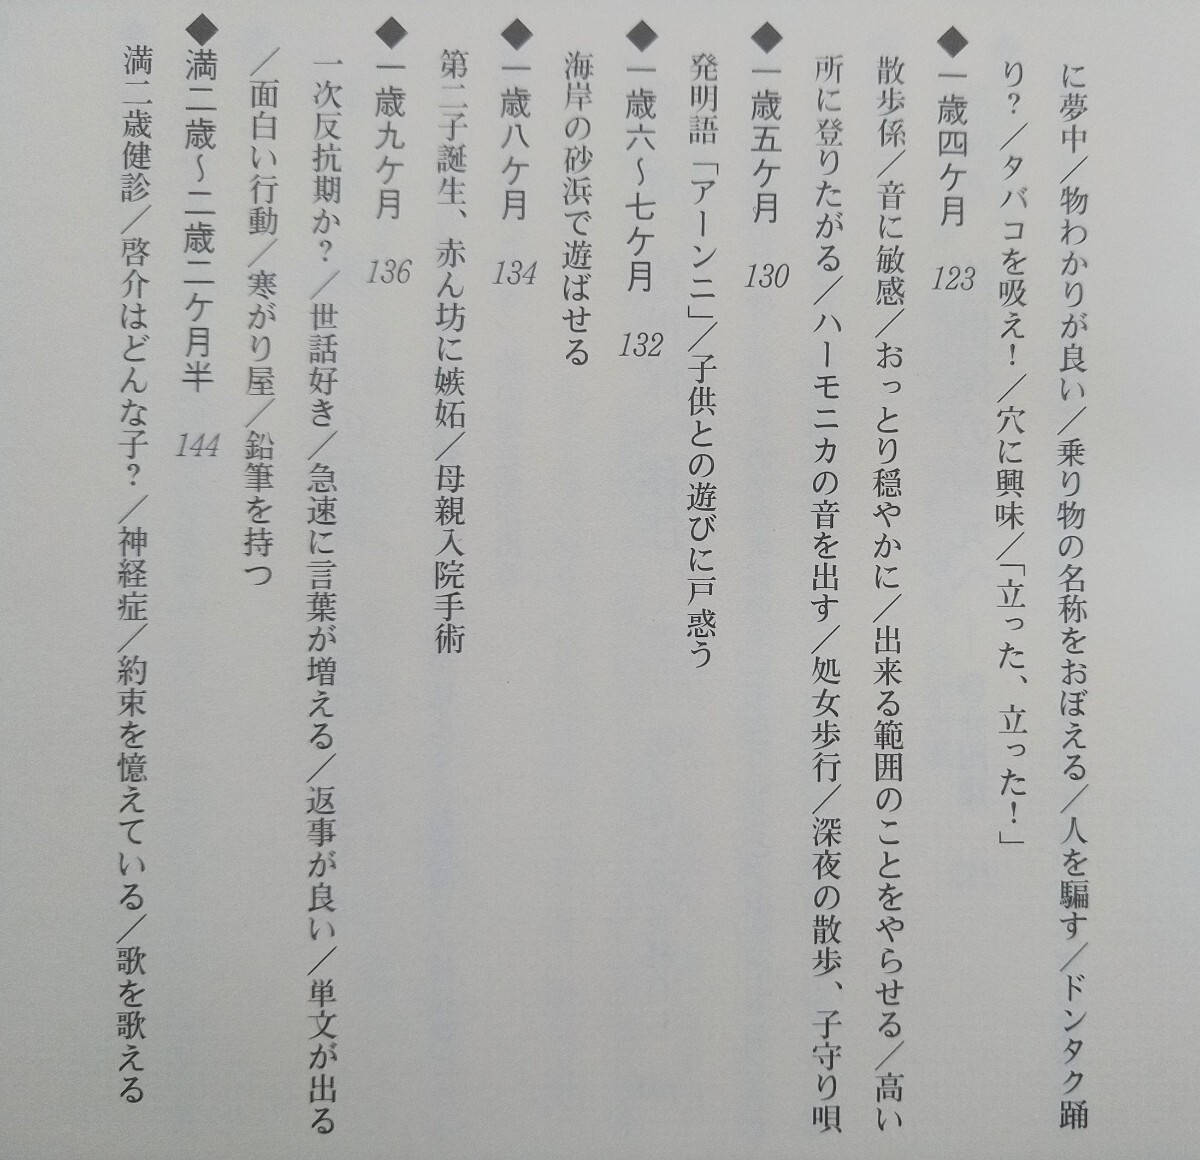 に夢中／物わかりが良い／乗り物の名称をおぼえる／人を騙す／ドンタク踊
り？／タバコを吸え！／穴に興味／「立った、立った！」
◆一歳四ケ月 123
散歩係／音に敏感／おっとり穏やかに／出来る範囲のことをやらせる／高い
所に登りたがる／ハーモニカの音を出す／処女歩行／深夜の散歩、子守り唄
◆一歳五ケ月 130
発明語「アーンニ」／子供との遊びに戸惑う
◆一歳六～七ケ月 132
海岸の砂浜で遊ばせる
◆一歳八ケ月 134
第二子誕生、赤ん坊に嫉妬／母親入院手術
◆一歳九ケ月 136
一次反抗期か？／世話好き／急速に言葉が増える／返事が良い／単文が出る
／面白い行動／寒がり屋／鉛筆を持つ
◆満二歳～二歳二ケ月半 144
満二歳健診／啓介はどんな子？／神経症／約束を憶えている／歌を歌える